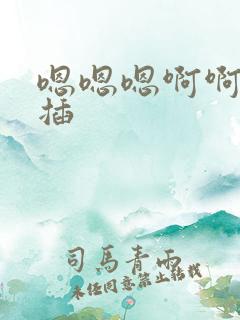 嗯嗯嗯啊啊
插
司马青雨
未经同意禁止转载